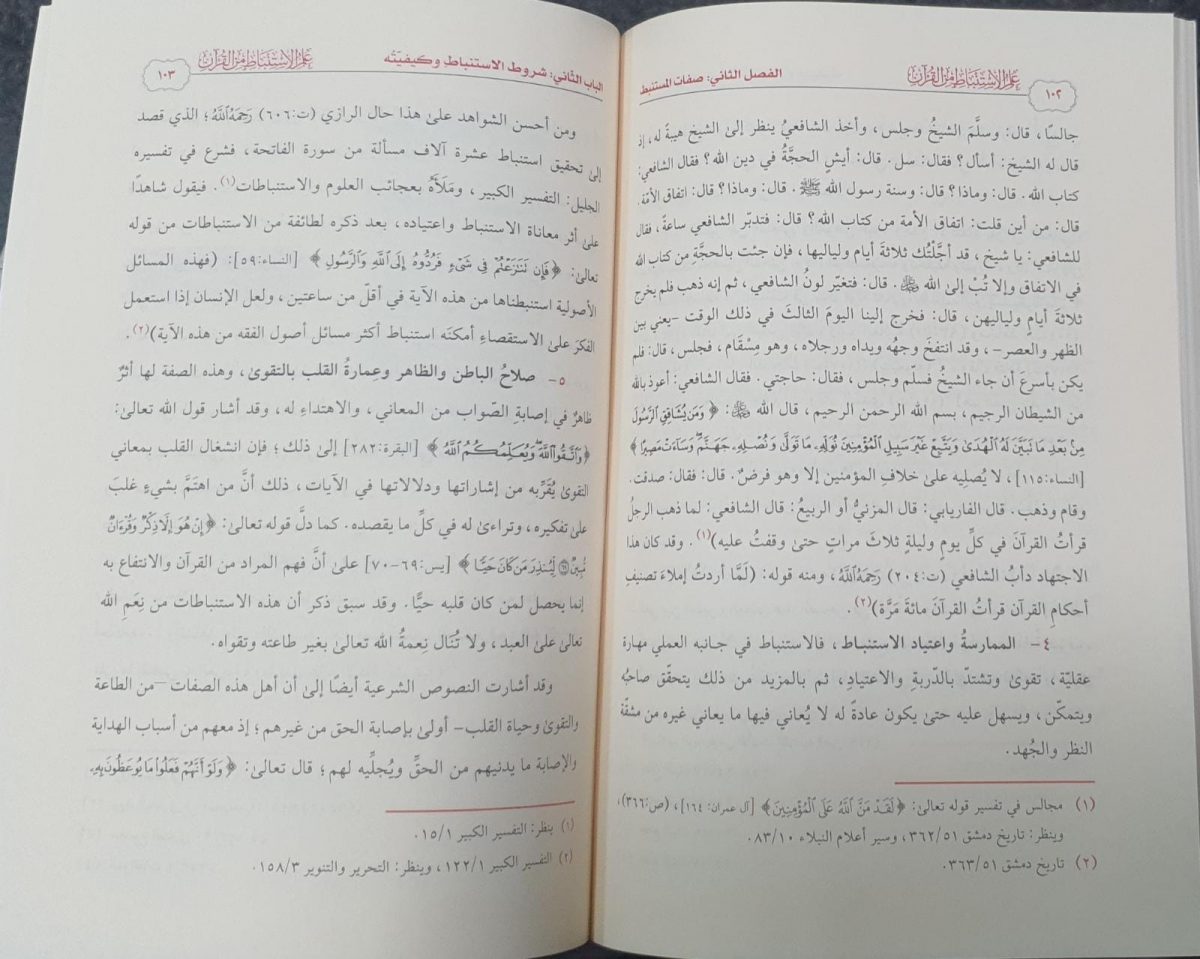 علم الاستنباط من القرآن
الفصل الثاني: صفات المستنبط
١٠٢
جالسًا، قال: وسلَّمَ الشيخُ وجلس، وأخذ الشافعيُ ينظر إلىٰ الشيخ هيبةً له، إذ
قال له الشيخ: أسأل؟ فقال: سل. قال: أيشٍ الحجَّةُ في دين الله؟ فقال الشافعي:
كتاب الله. قال: وماذا؟ قال: وسنة رسول الله ﷺ. قال: وماذا؟ قال: اتفاق الأمة.
قال: من أين قلت: اتفاق الأمة من كتاب الله؟ قال: فتدبّر الشافعي ساعةً، فقال
للشافعي: يا شيخ، قد أجَّلْتُك ثلاثةَ أيام ولياليها، فإن جئت بالحجَّةِ من كتاب الله
في الاتفاق وإلا تُبْ إلىٰ الله ﷻ. قال: فتغيّر لونُ الشافعي، ثم إنه ذهب فلم يخرج
ثلاثةَ أيامٍ ولياليهن، قال: فخرج إلينا اليومَ الثالثَ في ذلك الوقت -يعني بين
الظهر والعصر-، وقد انتفخَ وجهُه ويداه ورجلاه، وهو مِسْقَام، فجلس، قال: فلم
يكن بأسرعَ أن جاء الشيخُ فسلّم وجلس، فقال: حاجتي. فقال الشافعي: أعوذ بالله
من الشيطان الرجيم، بسم الله الرحمن الرحيم، قال الله ﷻ: ﴿وَمَن يُشَاقِقِ ٱلرَّسُولَ
مِنۢ بَعْدِ مَا تَبَيَّنَ لَهُ ٱلْهُدَىٰ وَيَتَّبِعْ غَيْرَ سَبِيلِ ٱلْمُؤْمِنِينَ نُوَلِّهِۦ مَا تَوَلَّىٰ وَنُصْلِهِۦ جَهَنَّمَ وَسَآءَتْ مَصِيرًا﴾
[النساء:١١٥]، لا يُصلِيه علىٰ خلاف المؤمنين إلا وهو فرضٌ. قال: فقال: صدقت.
وقام وذهب. قال: الفاريابي: قال: المزنيُّ أو الربيعُ: قال الشافعي: لما ذهب الرجلُ
قرأتُ القرآنَ في كلِّ يومٍ وليلةٍ ثلاثَ مراتٍ حتىٰ وقفتُ عليه)(١). وقد كان هذا
الاجتهاد دأبُ الشافعي (ت:٢٠٤) رَحِمَهُ ٱللَّهُ، ومنه قوله: (لَمَّا أردتُ إملاءَ تصنيفِ
أحكامِ القرآن قرأتُ القرآنَ مائةَ مَرَّة)(٢).
٤- الممارسةُ واعتياد الاستنباط، فالاستنباط في جانبه العملي مهارة
عقليّة، تقوىٰ وتشتدّ بالدّربةِ والاعتيادِ، ثم بالمزيد من ذلك يتحقّق صاحبُه
ويتمكّن، ويسهل عليه حتىٰ يكون عادةً له لا يُعاني فيها ما يعاني غيره من مشقَّة
النظر والجُهد.
(١) مجالس في تفسير قوله تعالىٰ: ﴿لَقَدْ مَنَّ ٱللَّهُ عَلَى ٱلْمُؤْمِنِينَ﴾ [آل عمران: ١٦٤]، (ص:٣٦٦)،
وينظر: تاريخ دمشق ٥١/‏٣٦٢، وسير أعلام النبلاء ١٠/‏٨٣.
(٢) تاريخ دمشق ٥١/‏٣٦٣.
الباب الثاني: شروط الاستنباط وكيفيَّتُه
علم الاستنباط من القرآن
١٠٣
ومن أحسن الشواهد علىٰ هذا حال الرازي (ت:٦٠٦) رَحِمَهُ ٱللَّهُ؛ الذي قصد
إلىٰ تحقيق استنباط عشرة آلاف مسألة من سورة الفاتحة، فشرع في تفسيره
الجليل: التفسير الكبير، ومَلَأَهُ بعجائب العلوم والاستنباطات(١). فيقول شاهدًا
علىٰ أثر معاناة الاستنباط واعتياده، بعد ذكره لطائفة من الاستنباطات من قوله
تعالىٰ: ﴿فَإِن تَنَٰزَعْتُمْ فِى شَىْءٍ فَرُدُّوهُ إِلَى ٱللَّهِ وَٱلرَّسُولِ﴾ [النساء:٥٩]: (فهذه المسائل
الأصولية استنبطناها من هذه الآية في أقلّ من ساعتين، ولعل الإنسان إذا استعمل
الفكرَ علىٰ الاستقصاءِ أمكنَه استنباط أكثر مسائل أصول الفقه من هذه الآية)(٢).
٥- صلاحُ الباطن والظاهر وعِمارةُ القلب بالتقوىٰ، وهذه الصفة لها أثرٌ
ظاهرٌ في إصابةِ الصّواب من المعاني، والاهتداءِ له، وقد أشار قول الله تعالىٰ:
﴿وَٱتَّقُوا۟ ٱللَّهَ ۖ وَيُعَلِّمُكُمُ ٱللَّهُ﴾ [البقرة:٢٨٢] إلىٰ ذلك؛ فإن انشغال القلب بمعاني
التقوىٰ يُقَرِّبه من إشاراتها ودلالاتها في الآيات، ذلك أنَّ من اهتَمَّ بشيءٍ غلبَ
علىٰ تفكيره، وتراءىٰ له في كلِّ ما يقصده. كما دلَّ قوله تعالىٰ: ﴿إِنْ هُوَ إِلَّا ذِكْرٌ وَقُرْءَانٌ
مُّبِينٌ ۝٦٩ لِّيُنذِرَ مَن كَانَ حَيًّا﴾ [يس:٦٩-٧٠] علىٰ أنَّ فهم المراد من القرآن والانتفاع به
إنما يحصل لمن كان قلبه حيًّا. وقد سبق ذكر أن هذه الاستنباطات من نِعَمِ الله
تعالىٰ علىٰ العبد، ولا تُنَال نِعمةُ الله تعالىٰ بغير طاعته وتقواه.
وقد أشارت النصوص الشرعية أيضًا إلىٰ أن أهل هذه الصفات -من الطاعة
والتقوىٰ وحياة القلب- أولىٰ بإصابة الحق من غيرهم؛ إذ معهم من أسباب الهداية
والإصابة ما يدنيهم من الحقِّ ويُجلِّيه لهم؛ قال تعالىٰ: ﴿وَلَوْ أَنَّهُمْ فَعَلُوا۟ مَا يُوعَظُونَ بِهِۦ
(١) ينظر: التفسير الكبير ١/‏١٥.
(٢) التفسير الكبير ١/‏١٢٢، وينظر: التحرير والتنوير ٣/‏١٥٨.